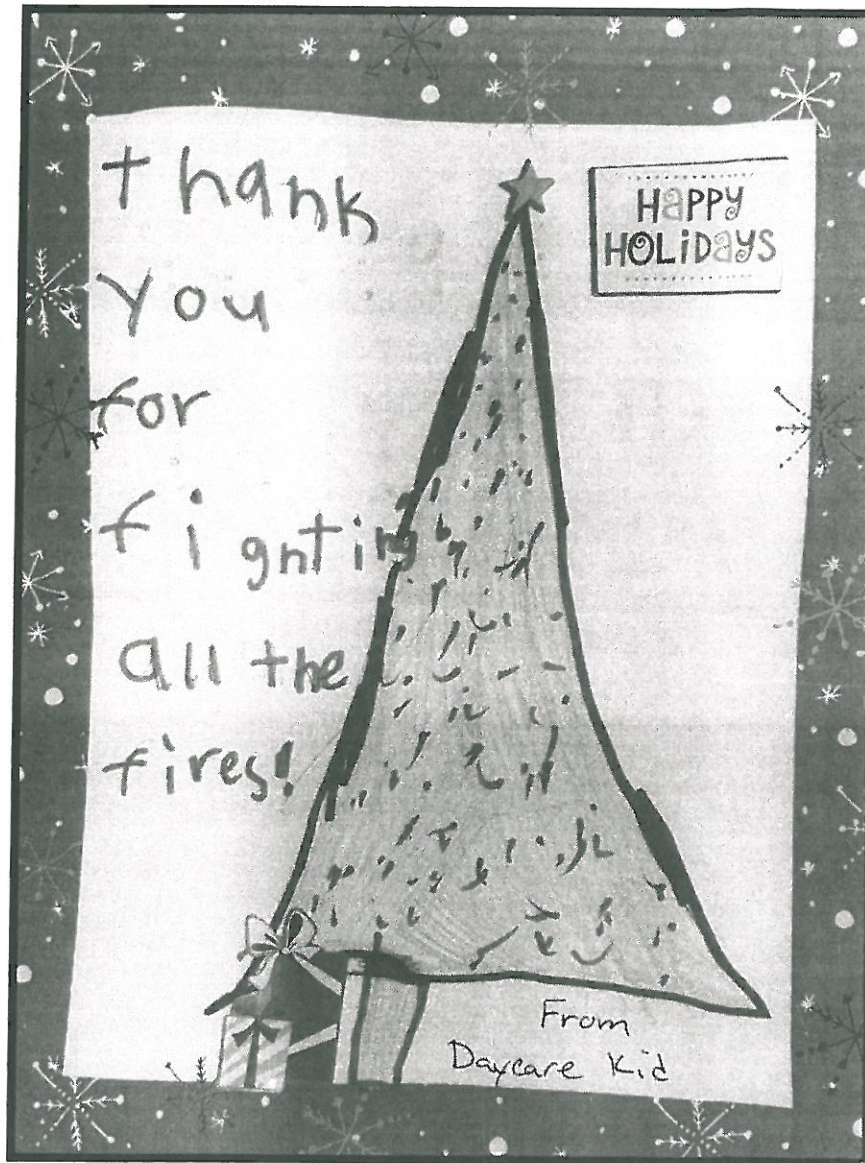 thank
you
for
fignting
all the
fires!
HAPPY
HOLiDaYS
From
Daycare Kid